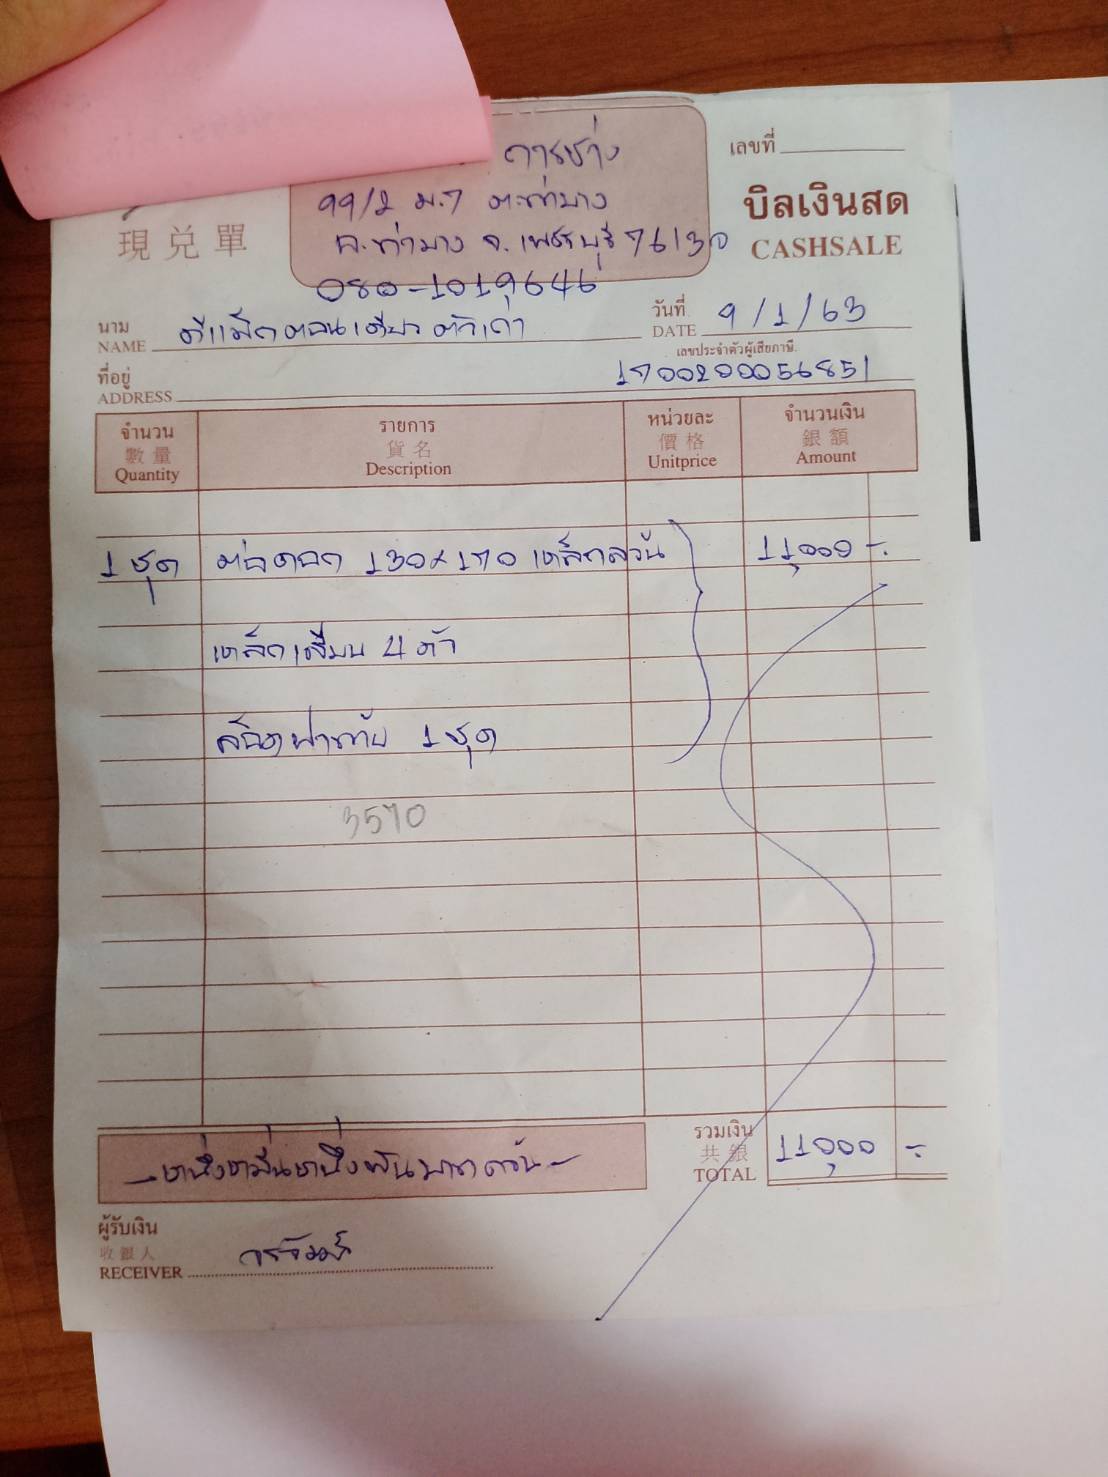 การช่าง
99/2 ม.7 ต.ท่ายาง
อ.ท่ายาง จ.เพชรบุรี 76130
080-1019646
現兑單
เลขที่
บิลเงินสด
CASHSALE
นาม
NAME ดีแม็กตอนเดียวตัวเก่า
วันที่
DATE 9/1/63
เลขประจำตัวผู้เสียภาษี
1700200056851
ที่อยู่
ADDRESS
จำนวน รายการ หน่วยละ จำนวนเงิน
數量 貨名 價格 銀額
Quantity Description Unitprice Amount
1 ชุด ต่อคอก 130x170 เหล็ก 11,000 -.
เหล็กเสียบ 4 ตัว
1 ชุด
3570
-หนึ่งหมื่นหนึ่งพันบาทถ้วน-
รวมเงิน
共銀
TOTAL 11,000 -.
ผู้รับเงิน
收銀人
RECEIVER